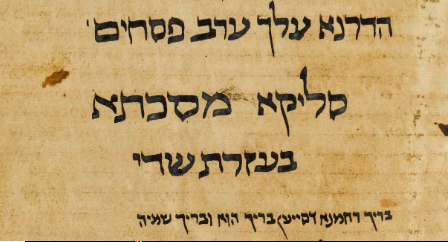 הדרנא עלך ערב פסחים
סליקא מסכתא
בעזרת שדי
בריך רחמנא דסייען בריך הוא ובריך שמיה